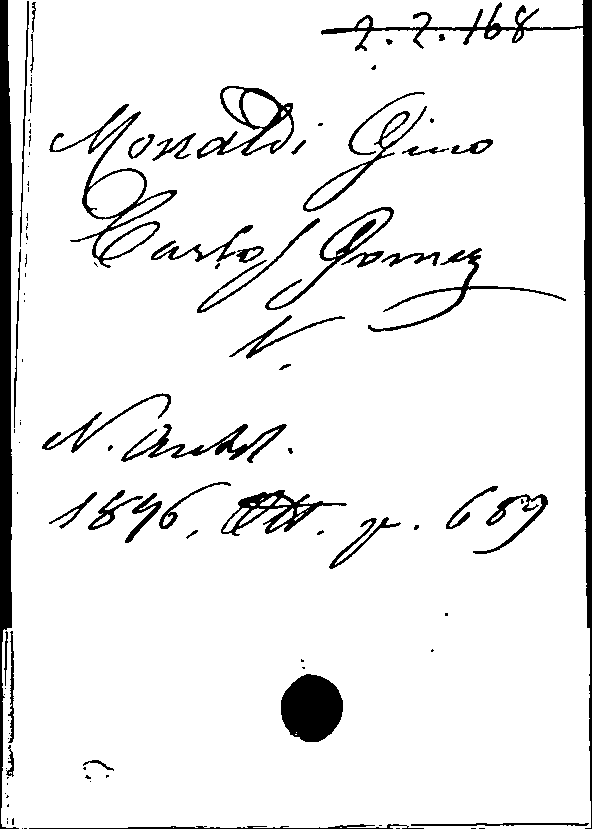 2.2.168
Monaldi Gino
Carlos Gomez
N.
N. Antol.
1896, Ott. p. 659